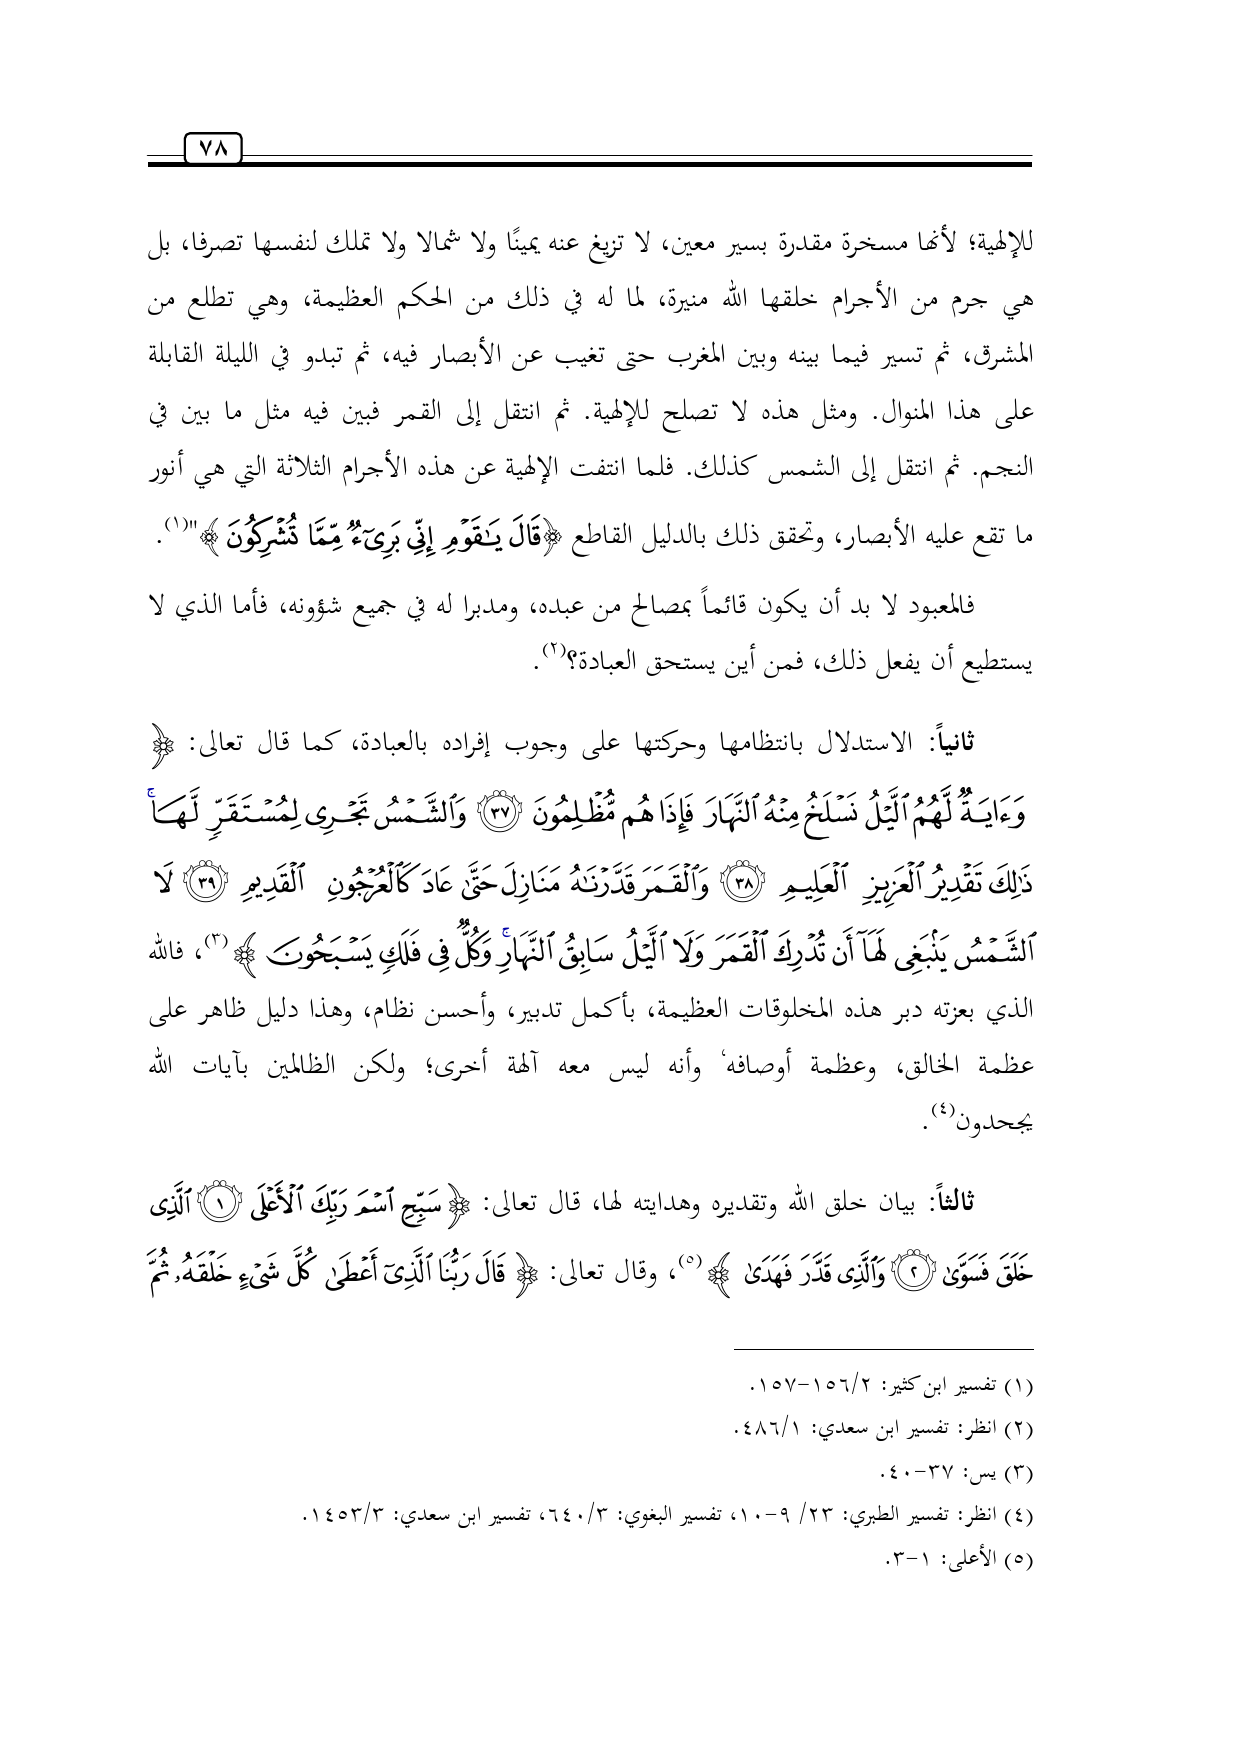 ٧٨
للإلهية؛ لأنها مسخرة مقدرة بسير معين، لا تزيغ عنه يمينًا ولا شمالا ولا تملك لنفسها تصرفا، بل
هي جرم من الأجرام خلقها الله منيرة، لما له في ذلك من الحكم العظيمة، وهي تطلع من
المشرق، ثم تسير فيما بينه وبين المغرب حتى تغيب عن الأبصار فيه، ثم تبدو في الليلة القابلة
على هذا المنوال. ومثل هذه لا تصلح للإلهية. ثم انتقل إلى القمر فبين فيه مثل ما بين في
النجم. ثم انتقل إلى الشمس كذلك. فلما انتفت الإلهية عن هذه الأجرام الثلاثة التي هي أنور
ما تقع عليه الأبصار، وتحقق ذلك بالدليل القاطع ﴿قَالَ يَـٰقَوْمِ إِنِّى بَرِىٓءٌ مِّمَّا تُشْرِكُونَ ﴾"(١).
فالمعبود لا بد أن يكون قائماً بمصالح من عبده، ومدبرا له في جميع شؤونه، فأما الذي لا
يستطيع أن يفعل ذلك، فمن أين يستحق العبادة؟(٢).
ثانياً: الاستدلال بانتظامها وحركتها على وجوب إفراده بالعبادة، كما قال تعالى: ﴿
وَءَايَةٌ لَّهُمُ ٱلَّيْلُ نَسْلَخُ مِنْهُ ٱلنَّهَارَ فَإِذَا هُم مُّظْلِمُونَ ٣٧ وَٱلشَّمْسُ تَجْرِى لِمُسْتَقَرٍّ لَّهَا ۚ
ذَٰلِكَ تَقْدِيرُ ٱلْعَزِيزِ ٱلْعَلِيمِ ٣٨ وَٱلْقَمَرَ قَدَّرْنَـٰهُ مَنَازِلَ حَتَّىٰ عَادَ كَٱلْعُرْجُونِ ٱلْقَدِيمِ ٣٩ لَا
ٱلشَّمْسُ يَنۢبَغِى لَهَآ أَن تُدْرِكَ ٱلْقَمَرَ وَلَا ٱلَّيْلُ سَابِقُ ٱلنَّهَارِ ۚ وَكُلٌّ فِى فَلَكٍ يَسْبَحُونَ ﴾(٣)، فالله
الذي بعزته دبر هذه المخلوقات العظيمة، بأكمل تدبير، وأحسن نظام، وهذا دليل ظاهر على
عظمة الخالق، وعظمة أوصافه‘ وأنه ليس معه آلهة أخرى؛ ولكن الظالمين بآيات الله
يجحدون(٤).
ثالثاً: بيان خلق الله وتقديره وهدايته لها، قال تعالى: ﴿ سَبِّحِ ٱسْمَ رَبِّكَ ٱلْأَعْلَى ١ ٱلَّذِى
خَلَقَ فَسَوَّىٰ ٢ وَٱلَّذِى قَدَّرَ فَهَدَىٰ ﴾(٥)، وقال تعالى: ﴿ قَالَ رَبُّنَا ٱلَّذِىٓ أَعْطَىٰ كُلَّ شَىْءٍ خَلْقَهُۥ ثُمَّ
(١) تفسير ابن كثير: ١٥٦/٢-١٥٧.
(٢) انظر: تفسير ابن سعدي: ٤٨٦/١.
(٣) يس: ٣٧-٤٠.
(٤) انظر: تفسير الطبري: ٢٣/ ٩-١٠، تفسير البغوي: ٦٤٠/٣، تفسير ابن سعدي: ١٤٥٣/٣.
(٥) الأعلى: ١-٣.